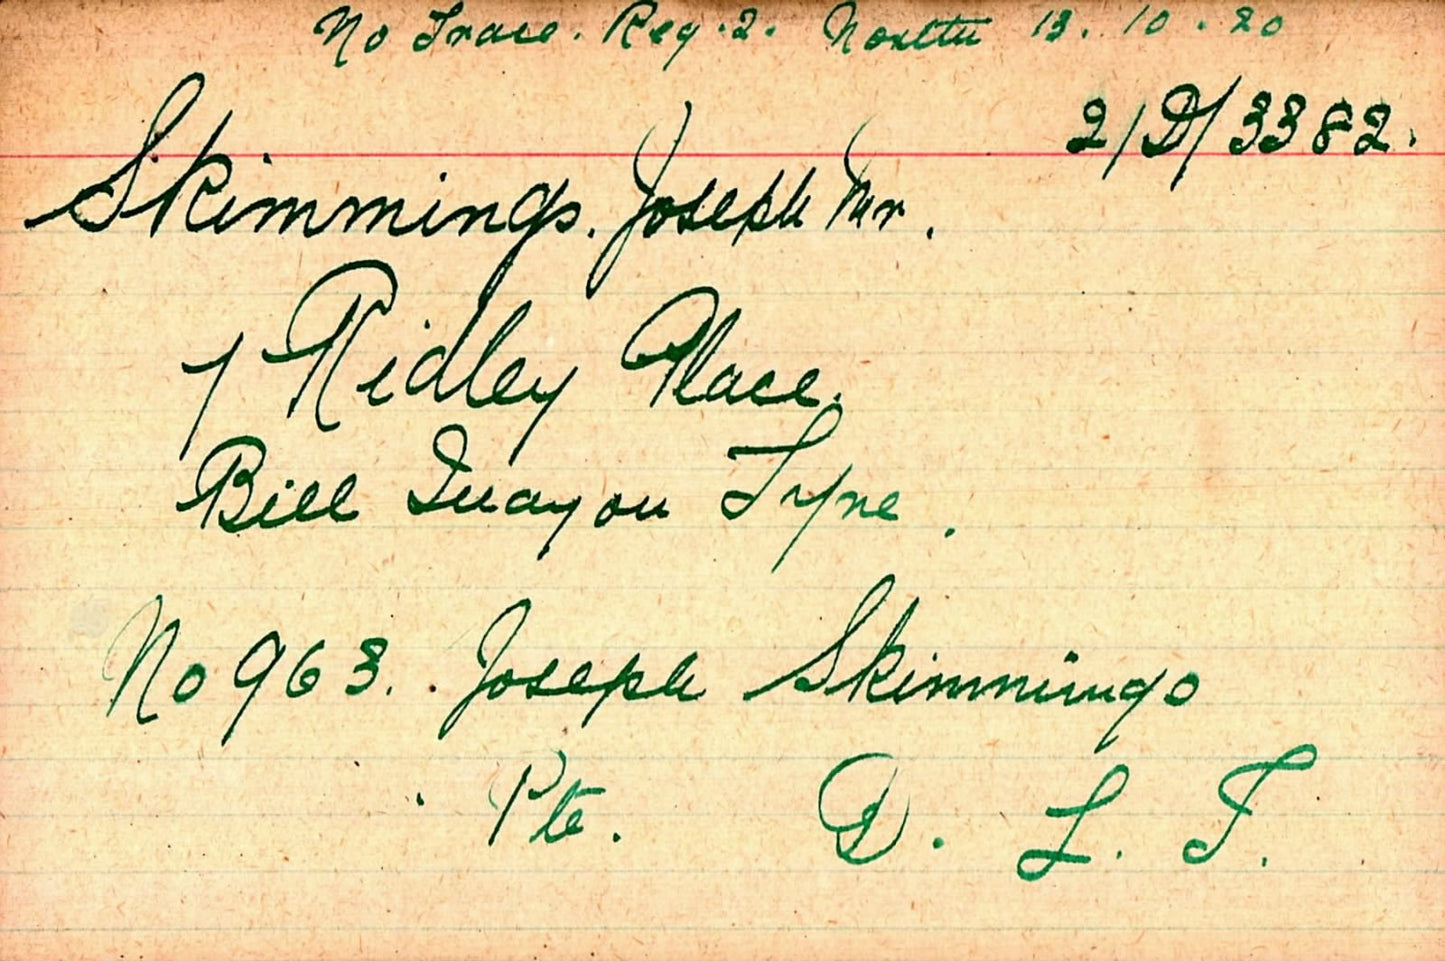 No Trace. Reg. 2. North 13. 10. 20
2/D/3382.
Skimmings. Joseph Mr.
7 Ridley Place.
Bill Quay on Tyne.
No 963. Joseph Skimmings
Pte. D. L. I.